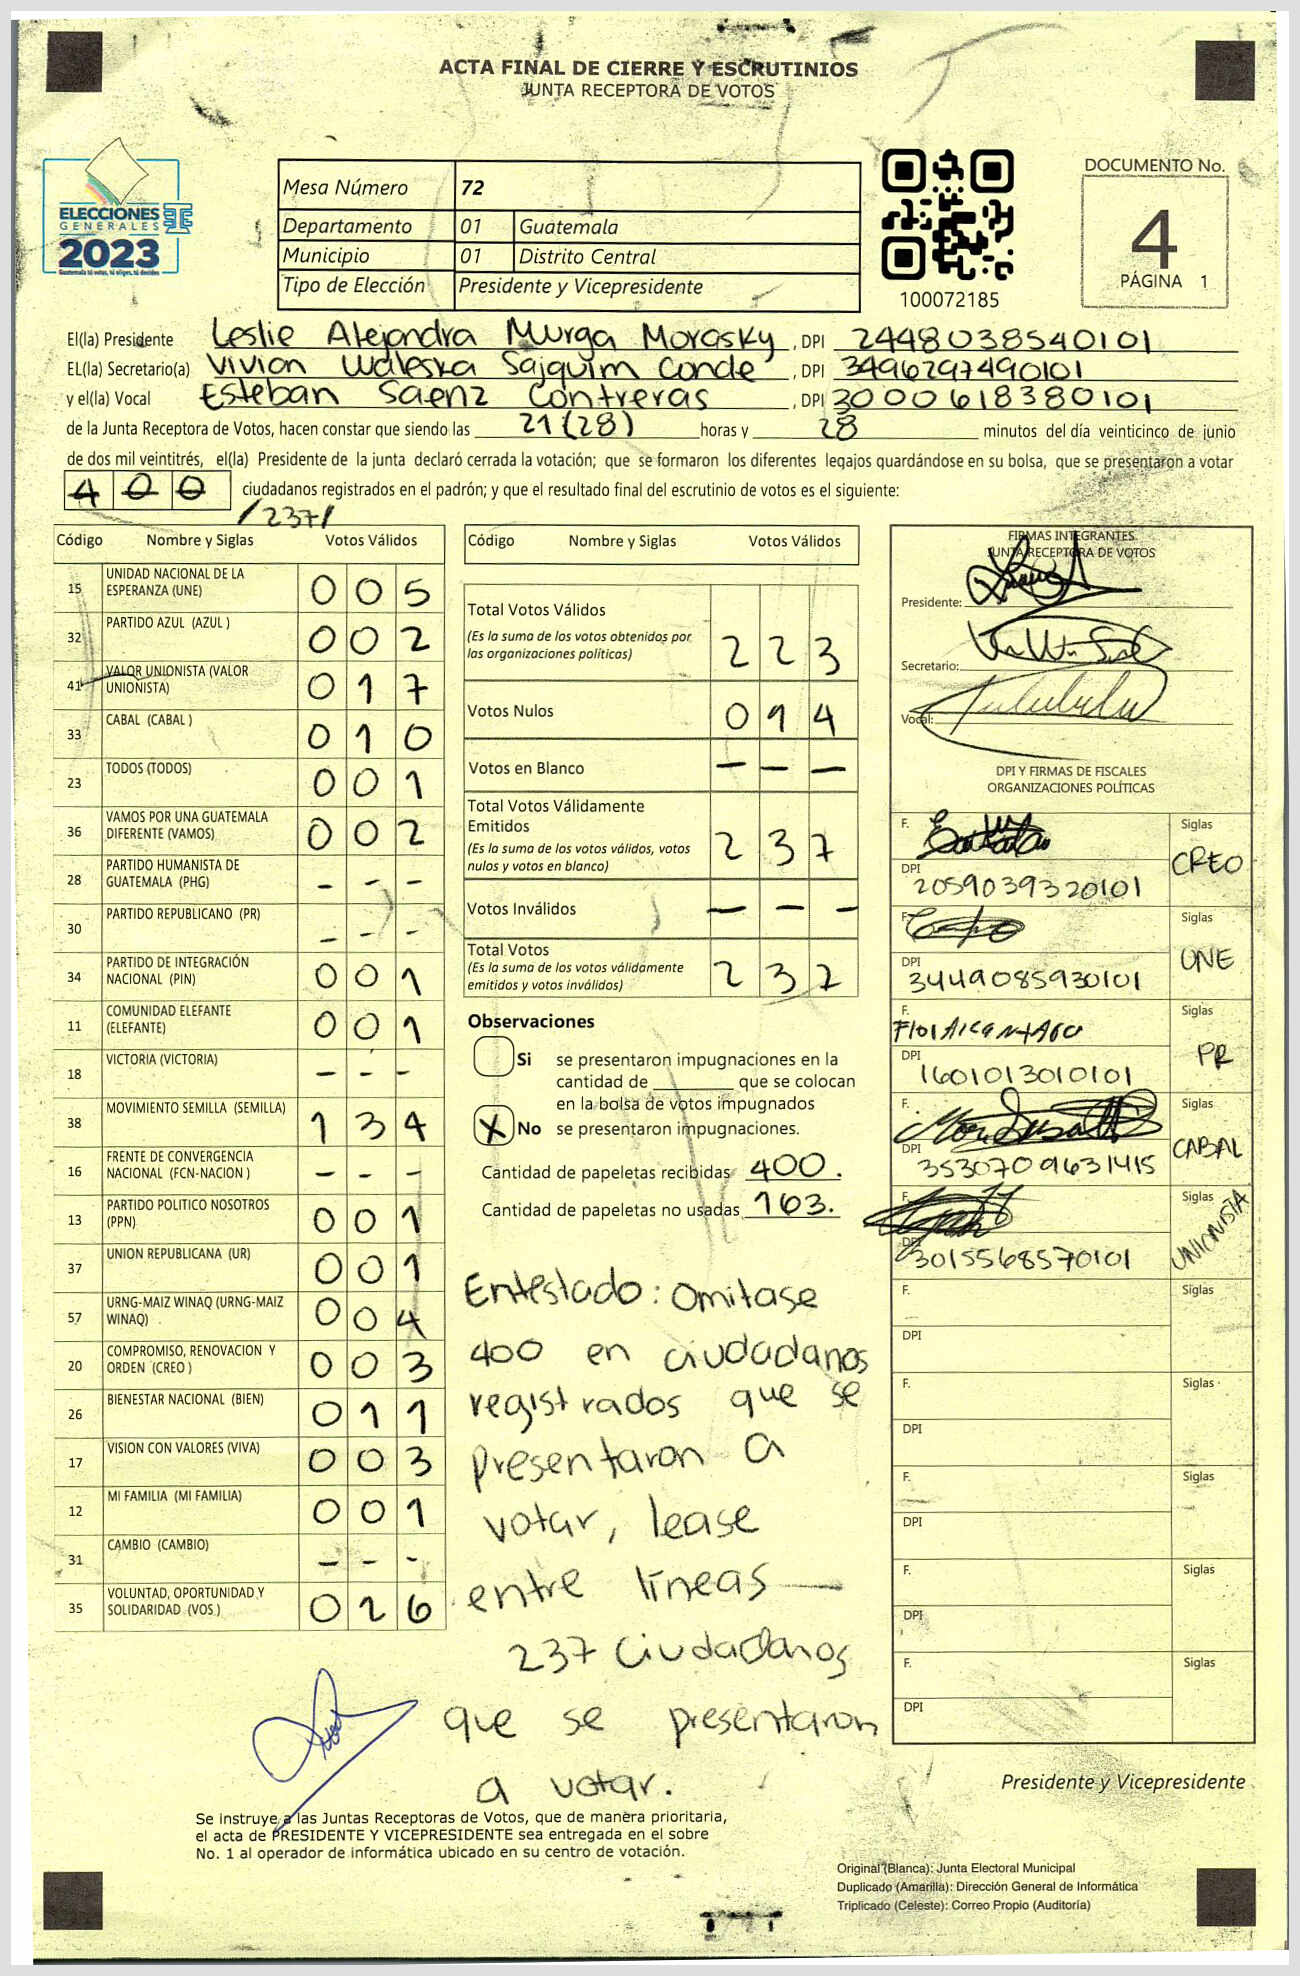 ACTA FINAL DE CIERRE Y ESCRUTINIOS
JUNTA RECEPTORA DE VOTOS
ELECCIONES
GENERALES
2023
Guatemala tú votas, tú eliges, tú decides
Mesa Número 72
Departamento 01 Guatemala
Municipio 01 Distrito Central
Tipo de Elección Presidente y Vicepresidente
100072185
DOCUMENTO No.
4
PÁGINA 1
El(la) Presidente Leslie Alejandra Murga Morasky, DPI 2448038540101
EL(la) Secretario(a) Vivian Waleska Sajquim Conde, DPI 3496297490101
y el(la) Vocal Esteban Saenz Contreras, DPI 3000618380101
de la Junta Receptora de Votos, hacen constar que siendo las 21 (28) horas y 28 minutos del día veinticinco de junio
de dos mil veintitrés, el(la) Presidente de la junta declaró cerrada la votación; que se formaron los diferentes legajos quardándose en su bolsa, que se presentaron a votar
400 ciudadanos registrados en el padrón; y que el resultado final del escrutinio de votos es el siguiente:
/237/
Código Nombre y Siglas Votos Válidos
15 UNIDAD NACIONAL DE LA ESPERANZA (UNE) 0 0 5
32 PARTIDO AZUL (AZUL ) 0 0 2
41 VALOR UNIONISTA (VALOR UNIONISTA) 0 1 7
33 CABAL (CABAL ) 0 1 0
23 TODOS (TODOS) 0 0 1
36 VAMOS POR UNA GUATEMALA DIFERENTE (VAMOS) 0 0 2
28 PARTIDO HUMANISTA DE GUATEMALA (PHG) - - -
30 PARTIDO REPUBLICANO (PR) - - -
34 PARTIDO DE INTEGRACIÓN NACIONAL (PIN) 0 0 1
11 COMUNIDAD ELEFANTE (ELEFANTE) 0 0 1
18 VICTORIA (VICTORIA) - - -
38 MOVIMIENTO SEMILLA (SEMILLA) 1 3 4
16 FRENTE DE CONVERGENCIA NACIONAL (FCN-NACION ) - - -
13 PARTIDO POLITICO NOSOTROS (PPN) 0 0 1
37 UNION REPUBLICANA (UR) 0 0 1
57 URNG-MAIZ WINAQ (URNG-MAIZ WINAQ) 0 0 4
20 COMPROMISO, RENOVACION Y ORDEN (CREO ) 0 0 3
26 BIENESTAR NACIONAL (BIEN) 0 1 1
17 VISION CON VALORES (VIVA) 0 0 3
12 MI FAMILIA (MI FAMILIA) 0 0 1
31 CAMBIO (CAMBIO) - - -
35 VOLUNTAD, OPORTUNIDAD Y SOLIDARIDAD (VOS ) 0 2 6
Código Nombre y Siglas Votos Válidos
Total Votos Válidos
(Es la suma de los votos obtenidos por las organizaciones políticas) 2 2 3
Votos Nulos 0 1 4
Votos en Blanco - - -
Total Votos Válidamente Emitidos
(Es la suma de los votos válidos, votos nulos y votos en blanco) 2 3 7
Votos Inválidos - - -
Total Votos
(Es la suma de los votos válidamente emitidos y votos inválidos) 2 3 7
Observaciones
Si se presentaron impugnaciones en la
cantidad de ________ que se colocan
en la bolsa de votos impugnados
X No se presentaron impugnaciones.
Cantidad de papeletas recibidas 400.
Cantidad de papeletas no usadas 163.
Entestado: Omitase
400 en ciudadanos
registrados que se
presentaron a
votar, lease
entre líneas —
237 ciudadanos
que se presentaron
a votar.
FIRMAS INTEGRANTES
JUNTA RECEPTORA DE VOTOS
Presidente:
Secretario:
Vocal:
DPI Y FIRMAS DE FISCALES
ORGANIZACIONES POLÍTICAS
F. Siglas CREO
DPI 2059039320101
F. Siglas UNE
DPI 3449085930101
F. Flor Alcantaro Siglas PR
DPI 1601013010101
F. Siglas CABAL
DPI 3530709631415
F. Siglas UNIONISTA
DPI 3015568570101
F. Siglas
DPI
F. Siglas
DPI
F. Siglas
DPI
F. Siglas
DPI
F. Siglas
DPI
Presidente y Vicepresidente
Se instruye a las Juntas Receptoras de Votos, que de manera prioritaria,
el acta de PRESIDENTE Y VICEPRESIDENTE sea entregada en el sobre
No. 1 al operador de informática ubicado en su centro de votación.
Original (Blanca): Junta Electoral Municipal
Duplicado (Amarilla): Dirección General de Informática
Triplicado (Celeste): Correo Propio (Auditoría)